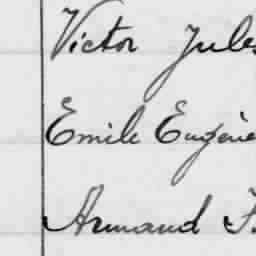 Victor Jules
Emile Eugène
Armand F